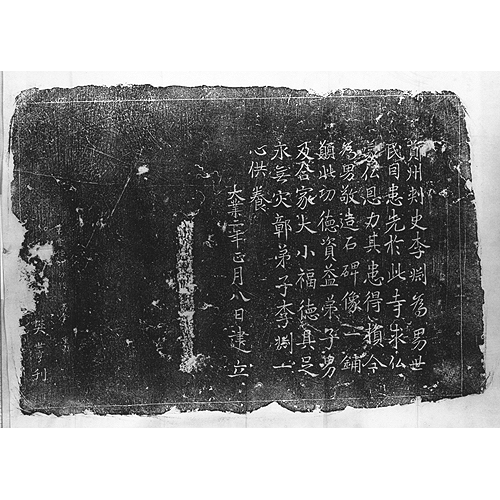 郑州刾史李渊為男世
民目患先於此寺求仏
蒙仏恩力其患得損今
為男敬造石碑像一鋪
願此功德資益弟子男
及合家大小福德具足
永无灾鄣弟子李渊一
心供養
大業二年正月八日建立
刊